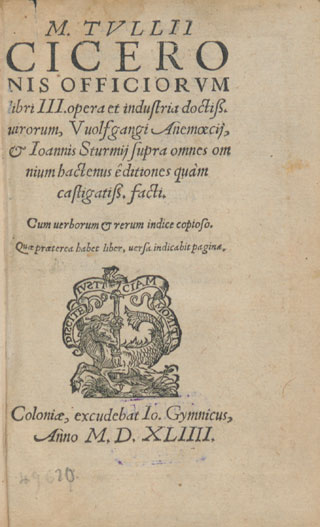 M. TVLLII
CICERO
NIS OFFICIORVM
libri III. opera et industria doctiß.
uirorum, Vuolfgangi Anemœcij,
& Ioannis Sturmij supra omnes om
nium hactenus êditiones quàm
castigatiß. facti.
Cum uerborum & rerum indice copioso.
Quæ præterea habet liber, uersa indicabit pagina.
DISCITE IVSTI CIAM MONITI
Coloniæ, excudebat Io. Gymnicus,
Anno M. D. XLIIII.